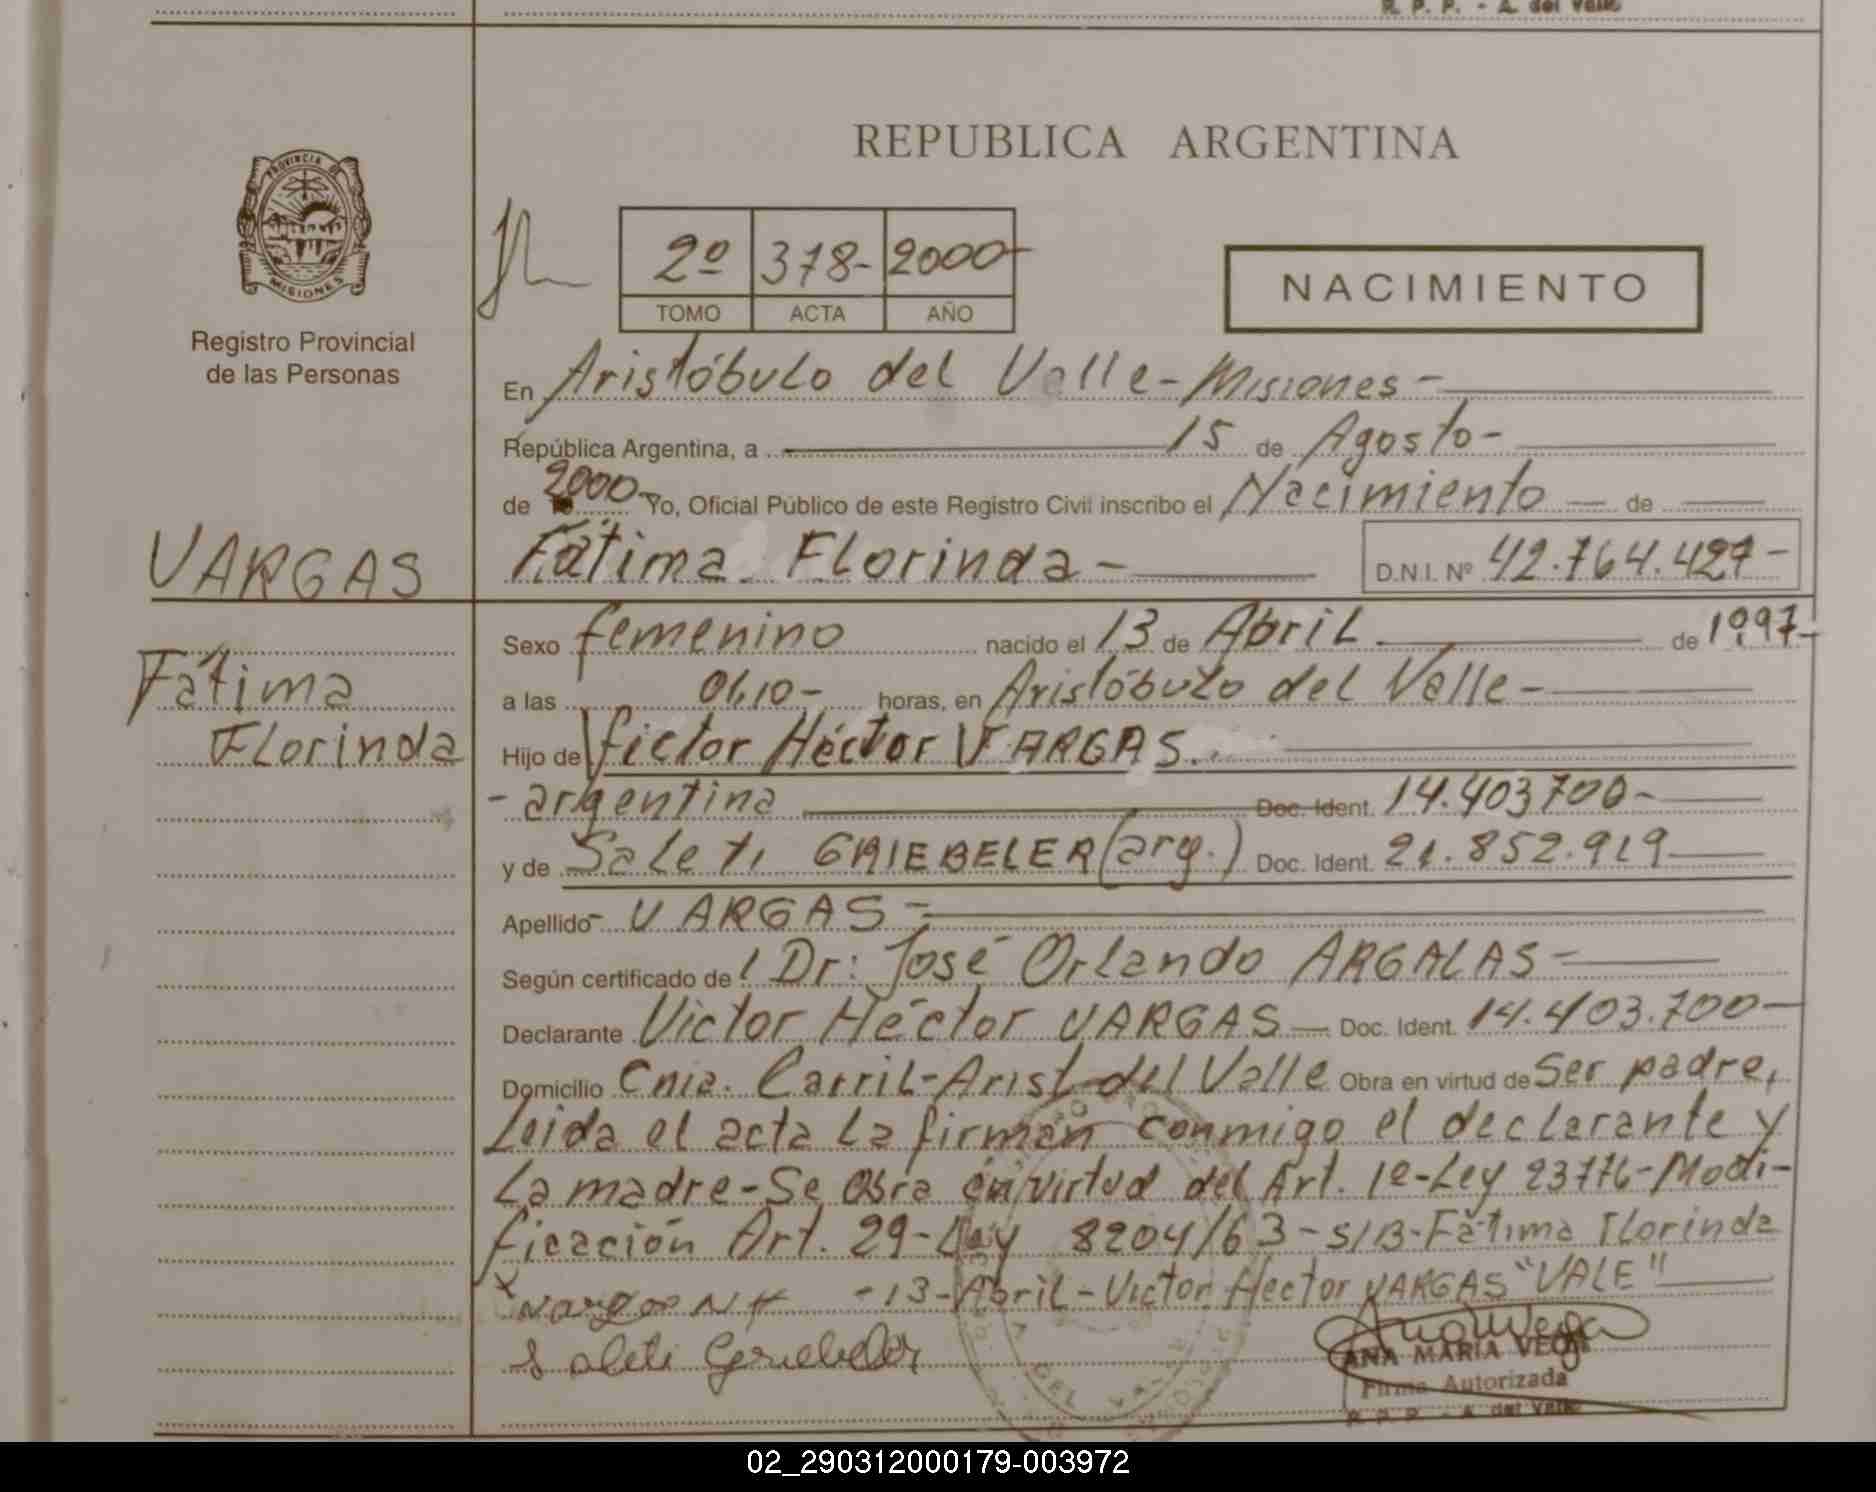 R. P. P. - A. del Valle
REPUBLICA ARGENTINA
PROVINCIA DE
MISIONES
Registro Provincial
de las Personas
2º 378- 2000-
TOMO ACTA AÑO
NACIMIENTO
En Aristóbulo del Valle - Misiones -
República Argentina, a 15 de Agosto -
de 2000- Yo, Oficial Público de este Registro Civil inscribo el Nacimiento — de
VARGAS Fátima Florinda - D.N.I. Nº 42.764.427-
Fátima
Florinda
Sexo femenino nacido el 13 de Abril de 1997-
a las 01,10- horas, en Aristóbulo del Valle -
Hijo de Victor Héctor VARGAS.
- argentina Doc. Ident. 14.403700-
y de Saleti GRIEBELER (arg.) Doc. Ident. 21.852.919
Apellido - VARGAS -
Según certificado de Dr: José Orlando ARGALAS -
Declarante Victor Héctor VARGAS — Doc. Ident. 14.403.700-
Domicilio Cnia. Carril - Arist. del Valle Obra en virtud de Ser padre,
Leida el acta la firman conmigo el declarante y
La madre - Se obra en virtud del Art. 1º - Ley 23776 - Modi-
ficación Art. 29 - Ley 8204/63 - S/B - Fátima Florinda
- 13 - Abril - Victor Hector VARGAS "VALE"
Saleti Griebeler
ANA MARIA VEGA
Firma Autorizada
R. P. P. - A. del Valle
02_290312000179-003972